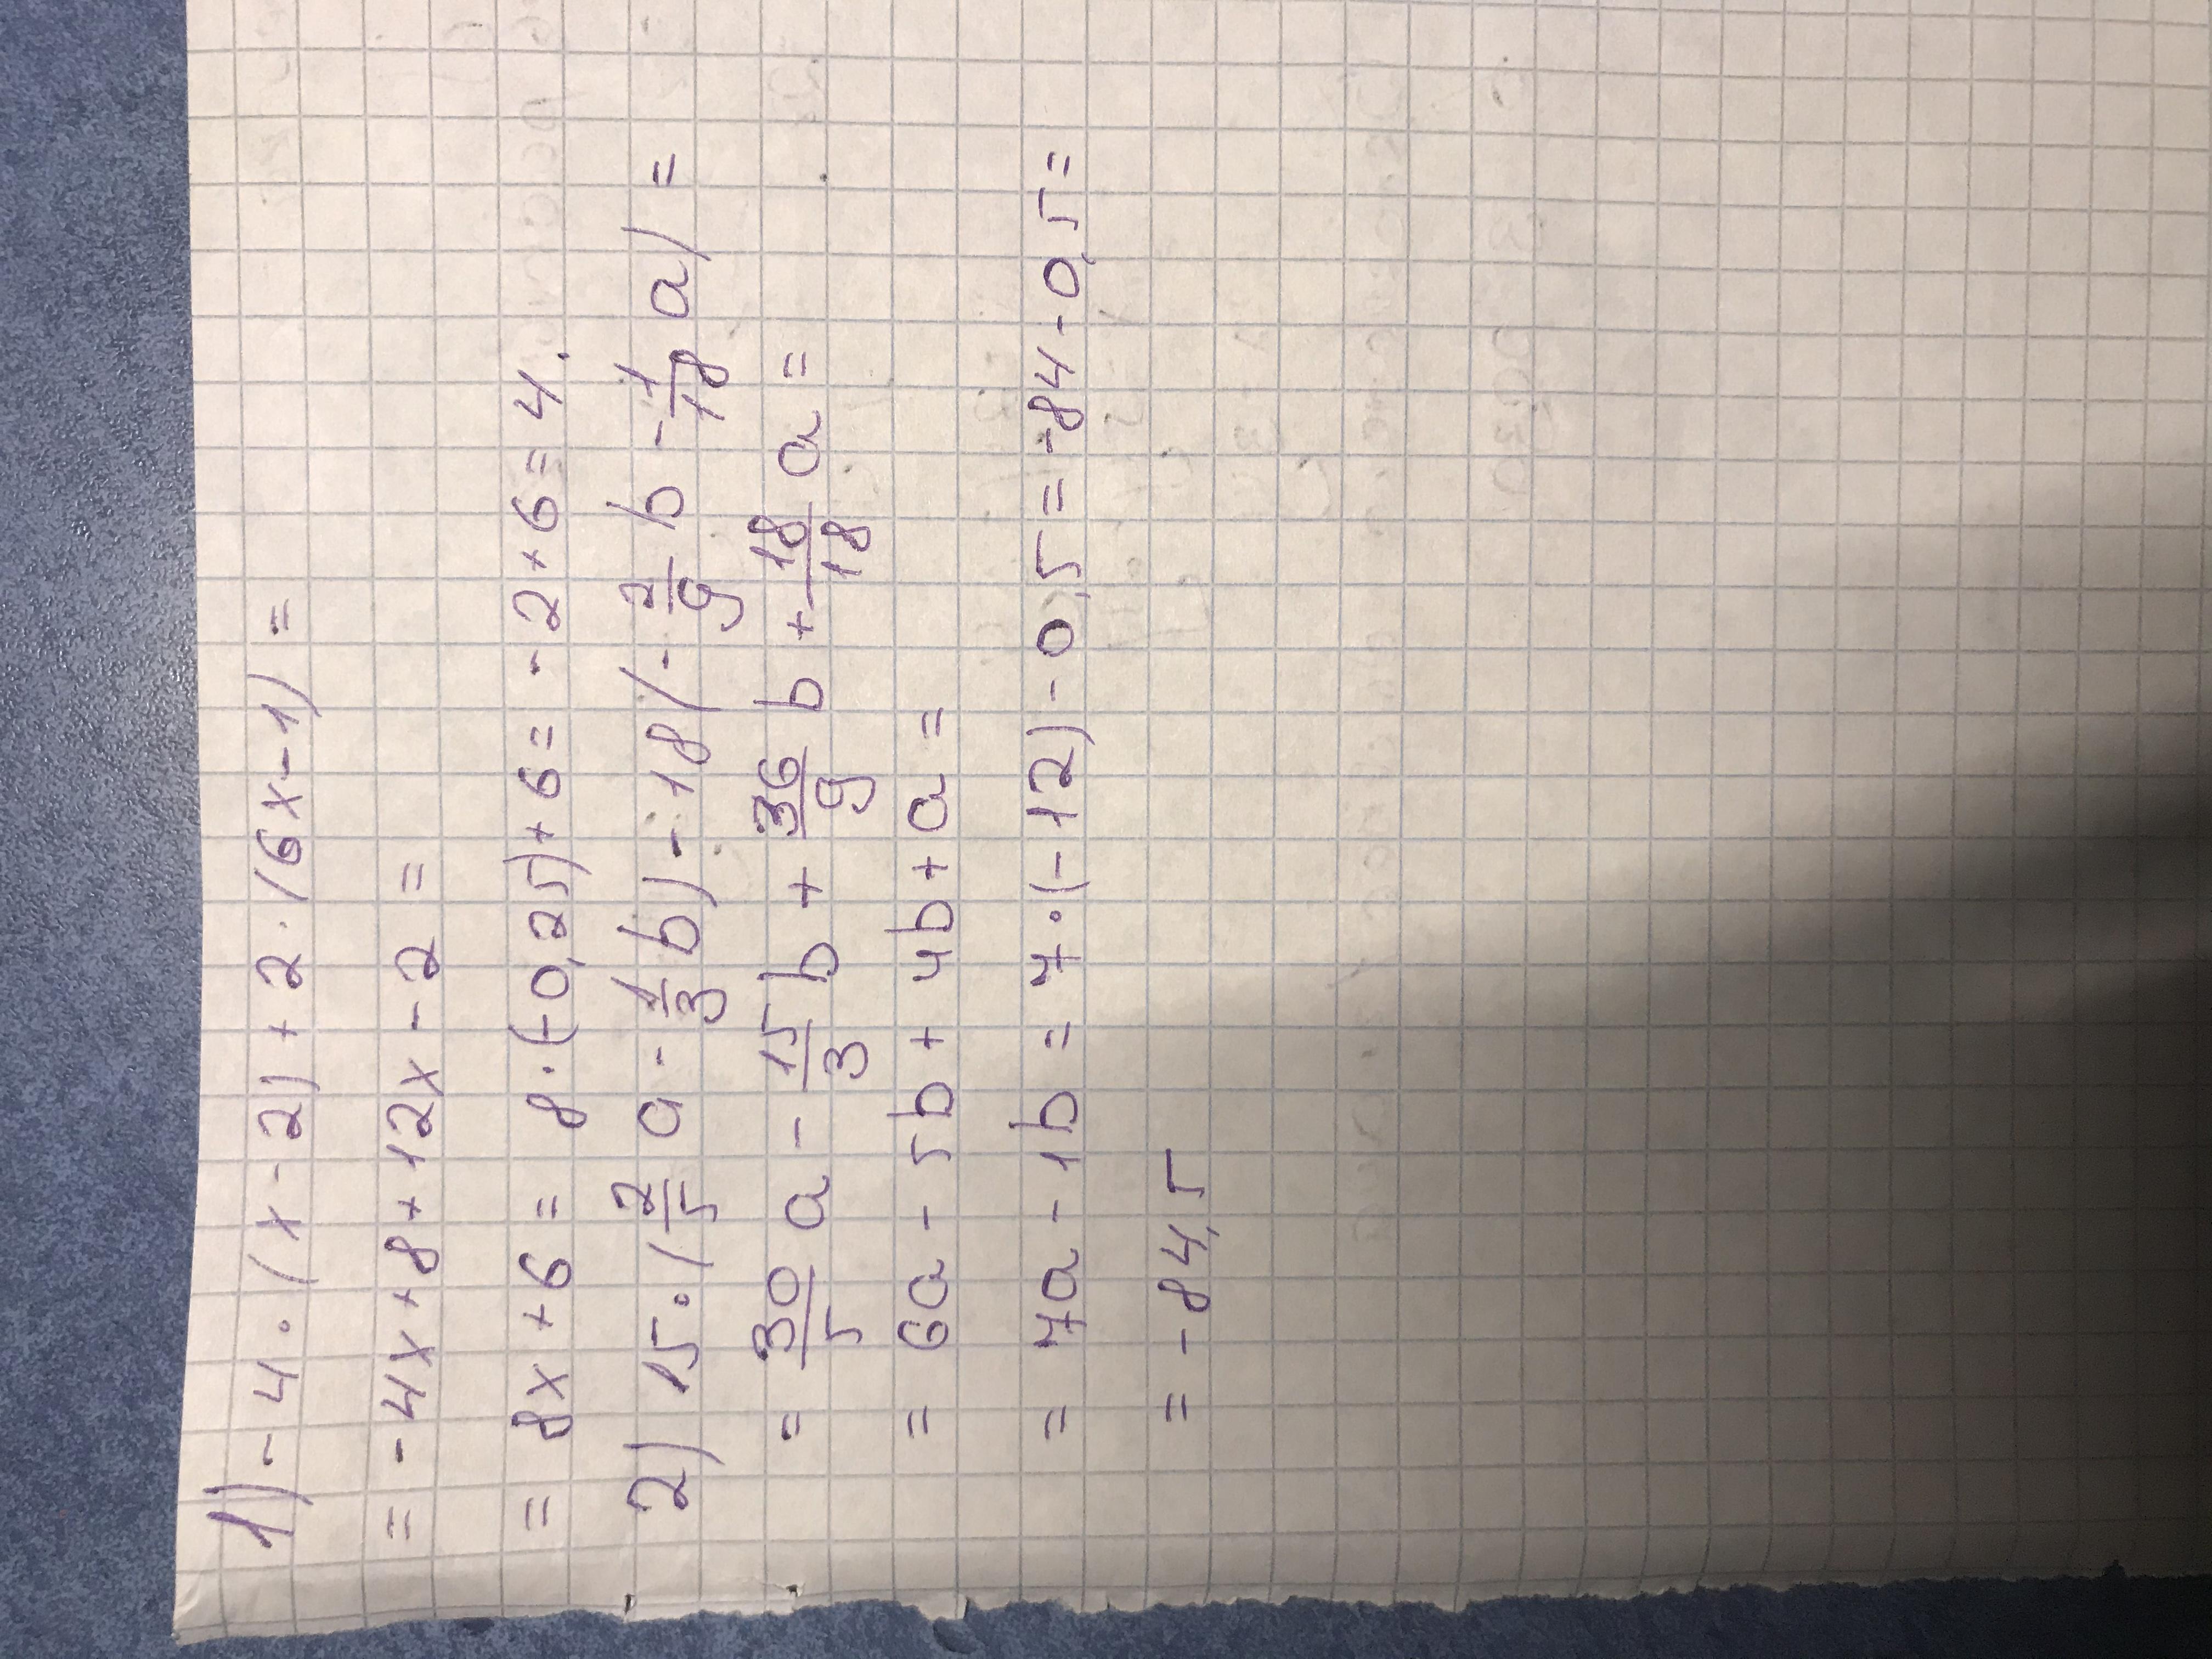 1) - 4 · (x - 2) + 2 · (6x - 1) =
= - 4x + 8 + 12x - 2 =
= 8x + 6 = 8 · (-0,25) + 6 = - 2 + 6 = 4.
2) 15 · (2/5 a - 1/3 b) - 18 (- 2/9 b - 1/18 a) =
= 30/5 a - 15/3 b + 36/9 b + 18/18 a =
= 6a - 5b + 4b + a =
= 7a - 1b = 7 · (-12) - 0,5 = -84 - 0,5 =
= - 84,5